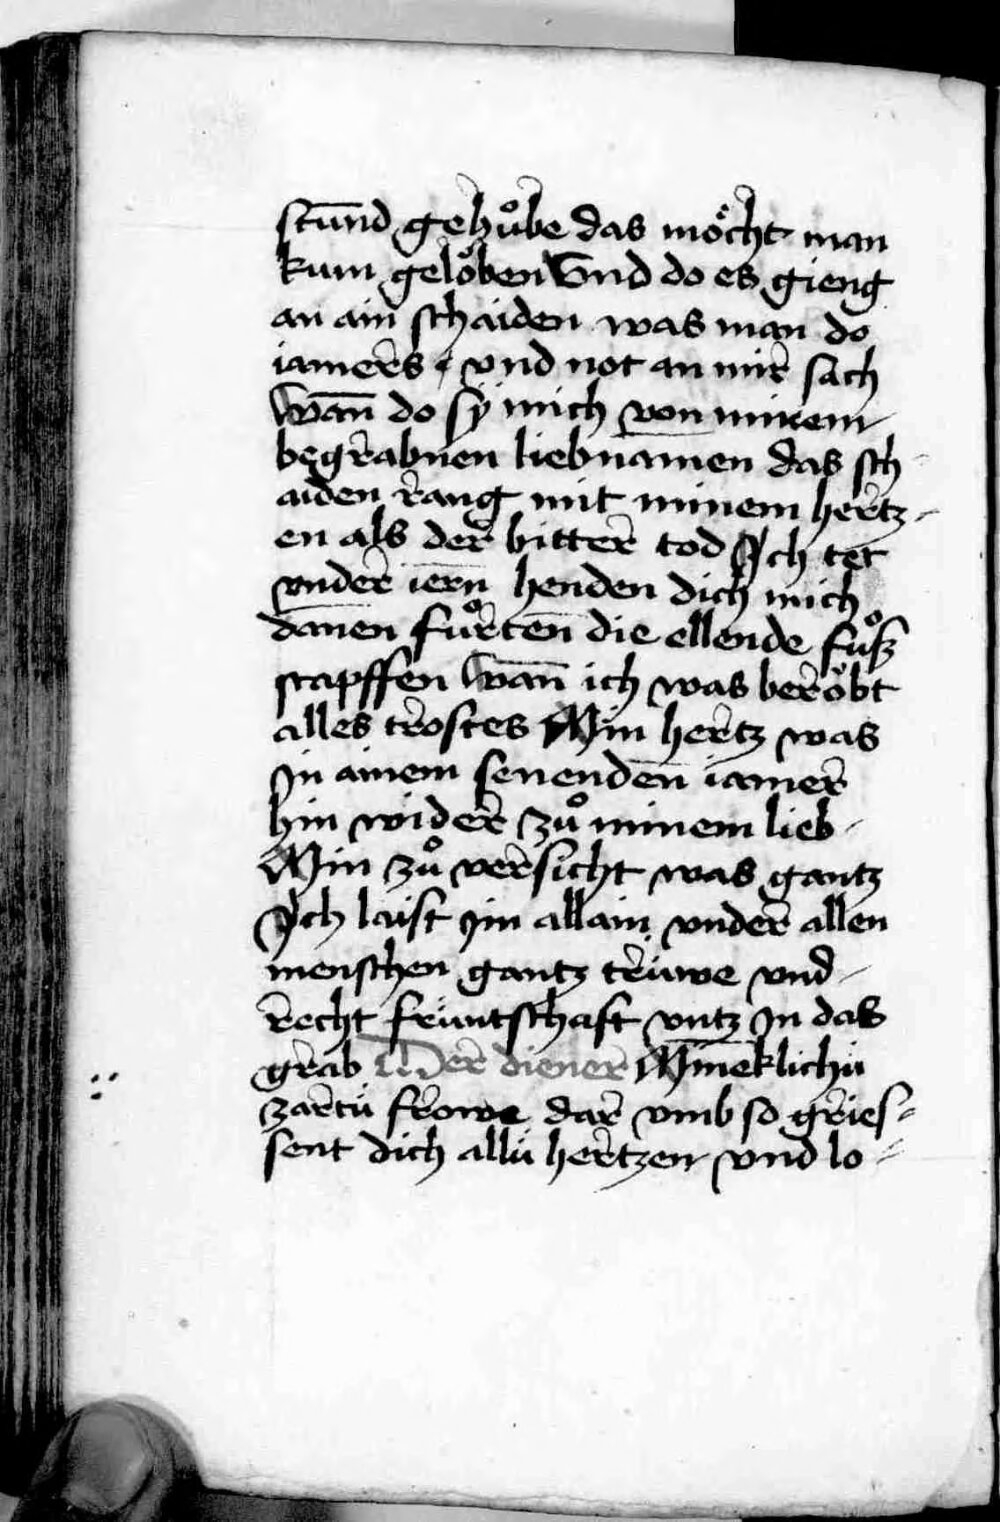 stūnd gehůbe das möcht man
kum gelöben Vnd do es gieng
an ain schaiden was man do
iamers vnd not an mir sach
Wān do sÿ mich von minem
begrabnen lieb namen das sch
aiden rang mit minem hertz-
en als der bitter tod Ich tet
vnder iern henden dich mich
dānen fůrten die ellende fůß
stapffen Wān ich was beröbt
alles trostes Min hertz was
In ainem senenden iamer
hin wider zů minem lieb
Min zů versicht was gantz
Ich laist Im allain vnder allen
menschen gantz trüwe vnd
recht früntschaft vntz In das
grab Der diener Mineklichü
zartü frowe dar vmb so gries-
sent dich allü hertzen vnd lo-